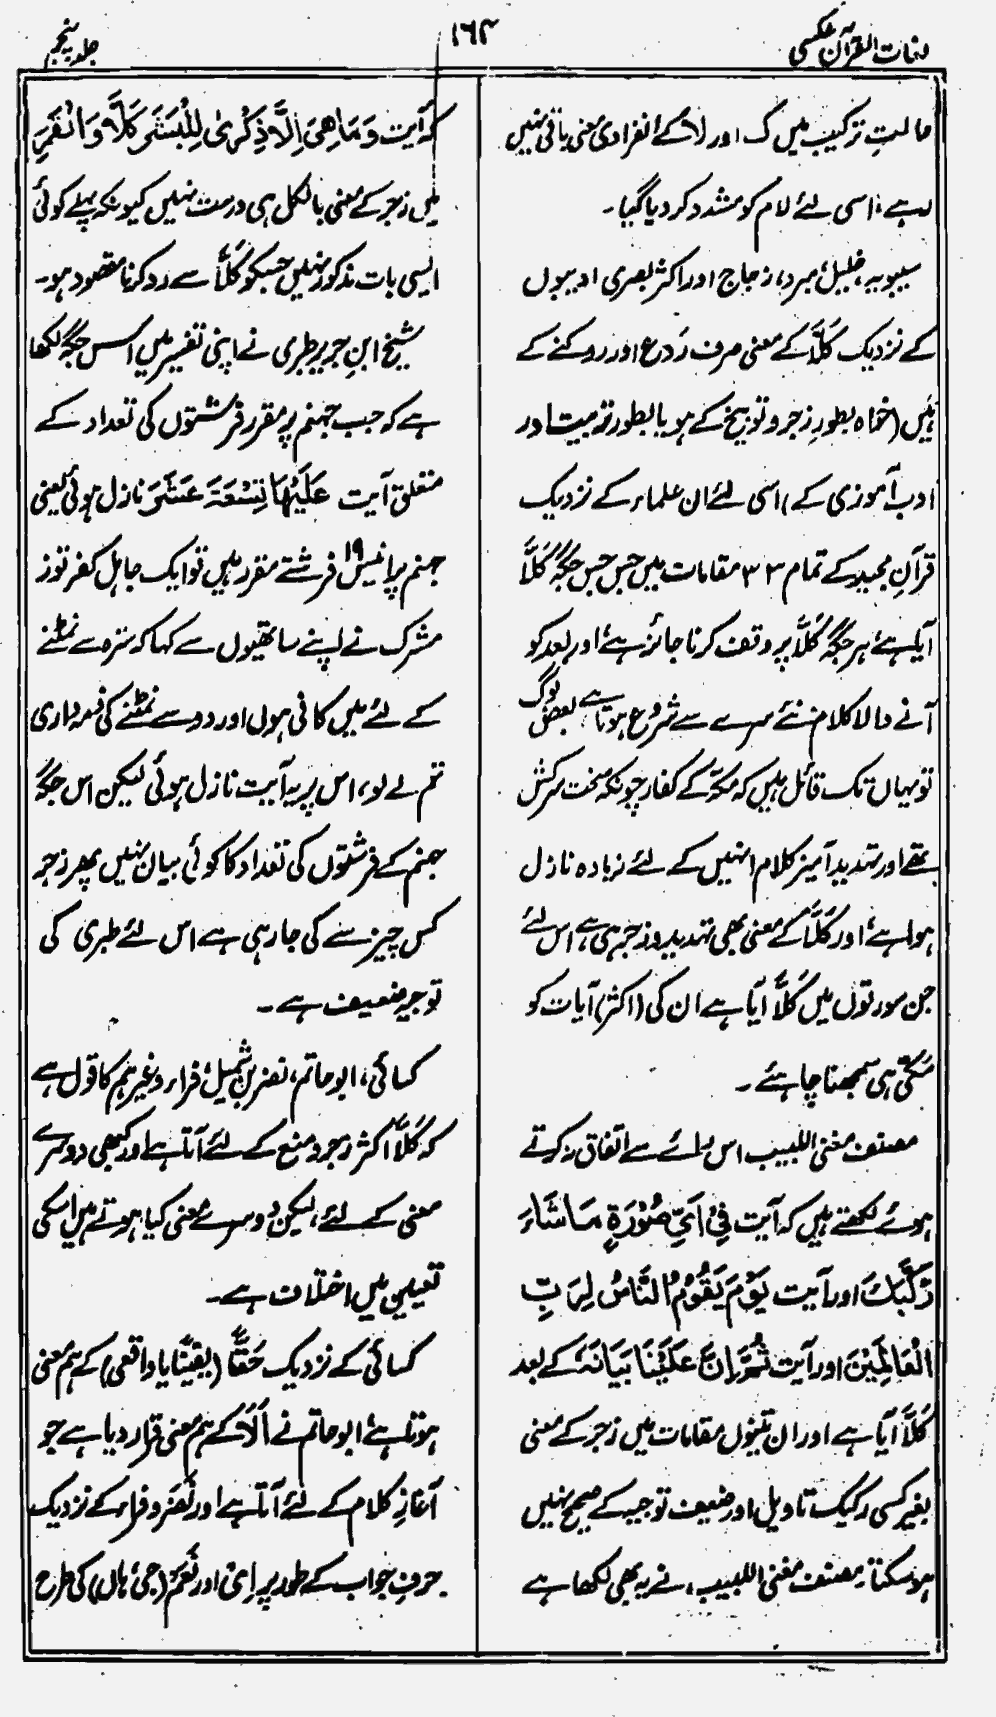 لغات القرآن عکسی
۱۶۴
جلد پنجم
حالتِ ترکیب میں ک اور لا کے انفرادی معنی باقی نہیں
رہے، اسی لئے لام کو مشدد کر دیا گیا۔
سیبویہ، خلیل، مبرد، زجاج اور اکثر بصری ادیبوں
کے نزدیک کَلَّا کے معنی صرف رَدَع اور روکنے کے
ہیں (خواہ بطورِ زجر و توبیخ کے ہو یا بطور تربیت اور
ادب آموزی کے) اسی لئے ان علماء کے نزدیک
قرآنِ مجید کے تمام ۳۳ مقامات میں جس جس جگہ کَلَّا
آیا ہے ہر جگہ کَلَّا پر وقف کرنا جائز ہے اور بعد کو
آنے والا کلام نئے سرے سے شروع ہوتا ہے، بعض لوگ
تو یہاں تک قائل ہیں کہ مکہ کے کفار چونکہ سخت سرکش
تھے اور تہدید آمیز کلام انہیں کے لئے زیادہ نازل
ہوا ہے اور کَلَّا کے معنی بھی تہدید و زجر ہی ہے، اس لئے
جن سورتوں میں کَلَّا آیا ہے ان کی (اکثر) آیات کو
مکّی ہی سمجھنا چاہئے۔
مصنف مغنی اللبیب اس رائے سے اتفاق نہ کرتے
ہوئے لکھتے ہیں کہ آیت فِیْ اَیِّ صُوْرَةٍ مَا شَاءَ
رَكَّبَكَ اور آیت یَوْمَ یَقُوْمُ النَّاسُ لِرَبِّ
الْعَالَمِیْنَ اور آیت ثُمَّ اِنَّ عَلَیْنَا بَیَانَهٗ کے بعد
کَلَّا آیا ہے اور ان تینوں مقامات میں زجر کے معنی
بغیر کسی رکیک تاویل اور ضعیف توجیہ کے صحیح نہیں
ہو سکتا، مصنف مغنی اللبیب، نے یہ بھی لکھا ہے
کہ آیت وَمَا هِیَ اِلَّا ذِكْرٰی لِلْبَشَرِ كَلَّا وَالْقَمَرِ
میں زجر کے معنی بالکل ہی درست نہیں کیونکہ پہلے کوئی
ایسی بات مذکور نہیں جسکو کَلَّا سے رد کرنا مقصود ہو۔
شیخ ابنِ جریر طبری نے اپنی تفسیر میں اس جگہ لکھا
ہے کہ جب جہنم پر مقرر فرشتوں کی تعداد کے
متعلق آیت عَلَیْهَا تِسْعَةَ عَشَرَ نازل ہوئی یعنی
جہنم پر انیس ۱۹ فرشتے مقرر ہیں تو ایک جاہل کفر توز
مشرک نے اپنے ساتھیوں سے کہا کہ سترہ سے نمٹنے
کے لئے میں کافی ہوں اور دو سے نمٹنے کی ذمہ داری
تم لے لو، اس پر یہ آیت نازل ہوئی لیکن اس جگہ
جہنم کے فرشتوں کی تعداد کا کوئی بیان نہیں پھر زجر
کس چیز سے کی جا رہی ہے اس لئے طبری کی
توجیہ ضعیف ہے۔
کسائی، ابو حاتم، نضر بن شمیل، فراء وغیرہم کا قول ہے
کہ کَلَّا اکثر زجر و منع کے لئے آتا ہے اور کبھی دوسرے
معنی کے لئے، لیکن دوسرے معنی کیا ہوتے ہیں اسکی
تعیین میں اختلاف ہے۔
کسائی کے نزدیک حَقًّا (یقیناً یا واقعی) کے ہم معنی
ہوتا ہے ابو حاتم نے اَلَا کے ہم معنی قرار دیا ہے جو
آغازِ کلام کے لئے آتا ہے اور نضر و فراء کے نزدیک
حرفِ جواب کے طور پر اِیْ اور نَعَمْ (جی ہاں) کی طرح